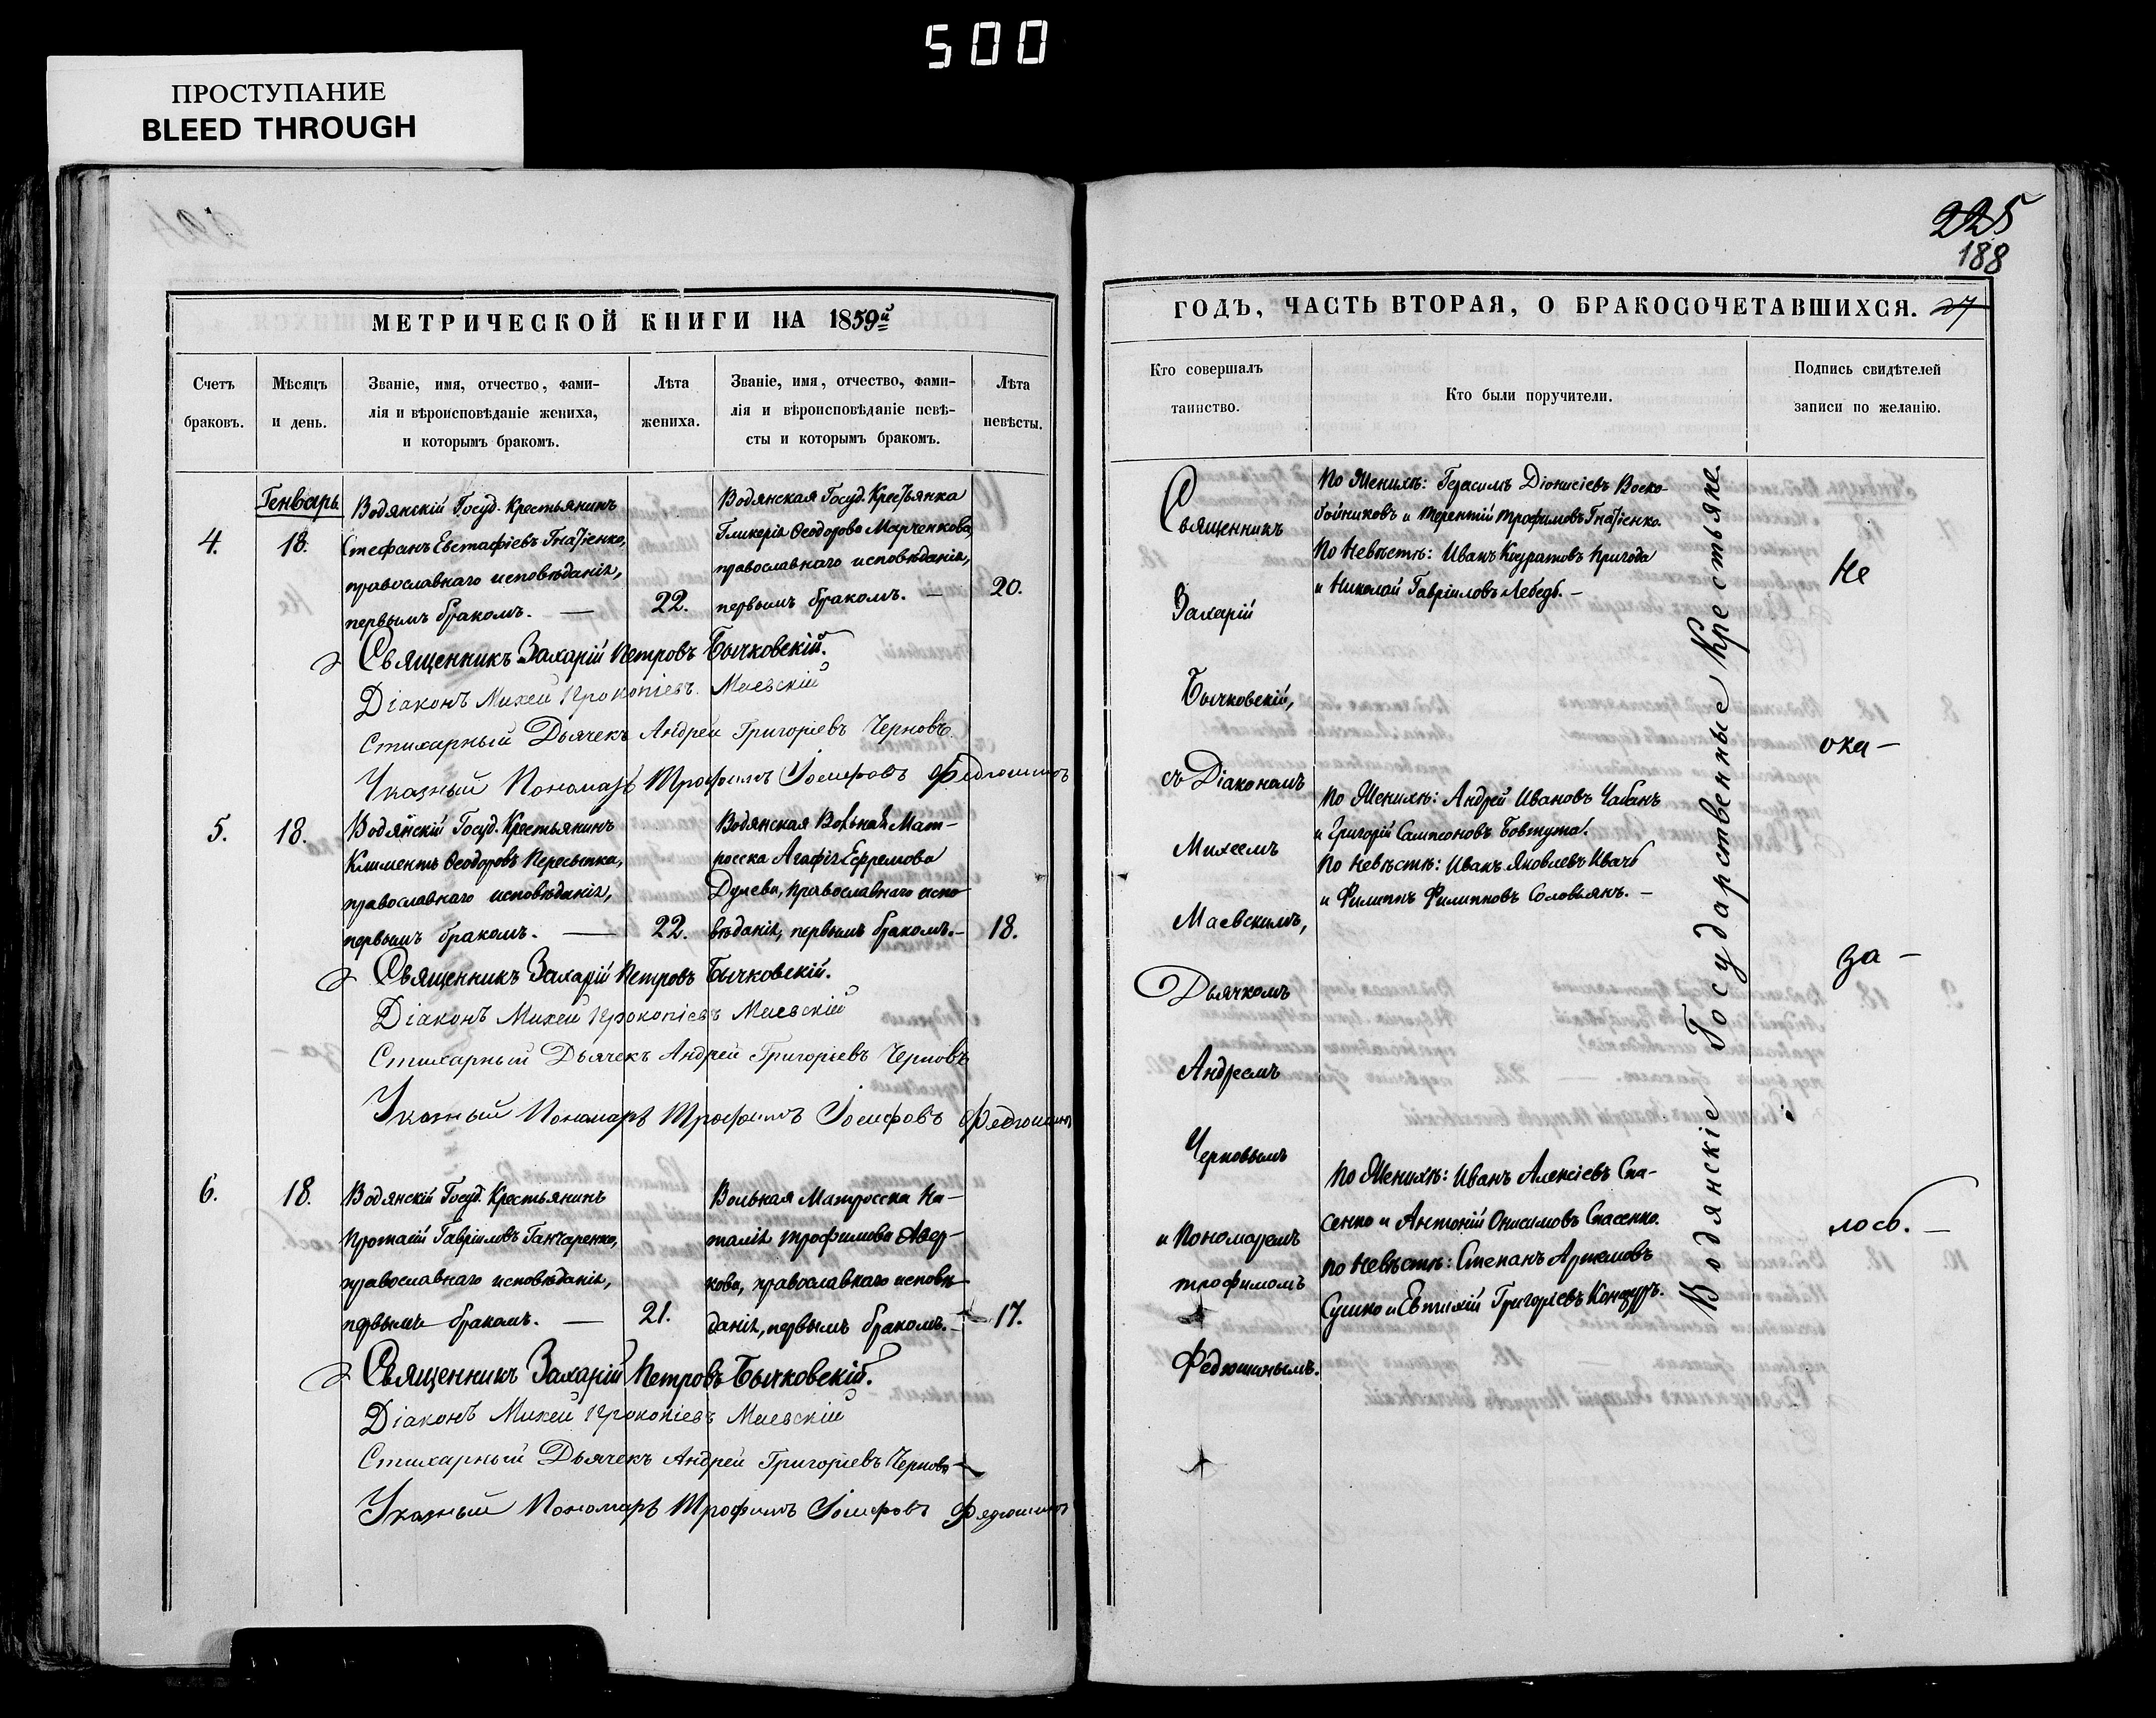 500
ПРОСТУПАНИЕ
BLEED THROUGH
МЕТРИЧЕСКОЙ КНИГИ НА 1859й
Счетъ браковъ.
Мѣсяцъ и день.
Званіе, имя, отчество, фами-
лія и вѣроисповѣданіе жениха,
и которымъ бракомъ.
Лѣта жениха.
Званіе, имя, отчество, фами-
лія и вѣроисповѣданіе невѣ-
сты и которымъ бракомъ.
Лѣта невѣсты.
Генварь
4.
18.
Водянскій Госуд. Крестьянинъ
Стефанъ Евстафіевъ Гнатіенко,
православнаго исповѣданія,
первымъ бракомъ. —
22.
Водянская Госуд. Крестьянка
Гликерія Ѳеодорова Марченкова,
православнаго исповѣданія,
первымъ бракомъ. —
20.
Священникъ Захарій Петровъ Бычковскій.
Діаконъ Михей Прокопіевъ Маевскій
Стихарный Дьячекъ Андрей Григоріевъ Черновъ.
Указный Пономарь Трофимъ Іосифовъ Федюшинъ
5.
18.
Водянскій Госуд. Крестьянинъ
Климентъ Ѳеодоровъ Пересыпка,
православнаго исповѣданія,
первымъ бракомъ. —
22.
Водянская Вольная Мат-
росска Агафія Ефремова
Дулева, православнаго испо
вѣданія, первымъ бракомъ. —
18.
Священникъ Захарій Петровъ Бычковскій.
Діаконъ Михей Прокопіевъ Маевскій
Стихарный Дьячекъ Андрей Григоріевъ Черновъ
Указный Пономарь Трофимъ Іосифовъ Федюшинъ
6.
18.
Водянскій Госуд. Крестьянинъ
Протасій Гавріиловъ Ганчаренко,
православнаго исповѣданія,
первымъ бракомъ. —
21.
Вольная Матросска На-
талія Трофимова Авер-
кова, православнаго исповѣ
данія, первымъ бракомъ. —
17.
Священникъ Захарій Петровъ Бычковскій.
Діаконъ Михей Прокопіевъ Маевскій
Стихарный Дьячекъ Андрей Григоріевъ Черновъ
Указный Пономарь Трофимъ Іосифовъ Федюшинъ
225
188
ГОДЪ, ЧАСТЬ ВТОРАЯ, О БРАКОСОЧЕТАВШИХСЯ. 27
Кто совершалъ
таинство.
Кто были поручители.
Подпись свидѣтелей
записи по желанію.
Священникъ
Захарій
Бычковскій,
съ Діакономъ
Михеемъ
Маевскимъ,
Дьячкомъ
Андреемъ
Черновымъ
и Пономаремъ
Трофимомъ
Федюшинымъ.
По Женихѣ: Герасимъ Діонисіевъ Воско-
бойниковъ и Терентій Трофимовъ Гнатіенко.
По Невѣстѣ: Иванъ Кондратовъ Пригода
и Николай Гавріиловъ Лебедь. —
По Женихѣ: Андрей Ивановъ Чабанъ
и Григорій Сампсоновъ Бовтута.
По Невѣстѣ: Иванъ Яковлевъ Ивачъ
и Филиппъ Филипповъ Соловьянъ. —
По Женихѣ: Иванъ Алексіевъ Спа-
сенко и Антоній Онисимовъ Спасенко.
По Невѣстѣ: Степанъ Артемовъ
Сушко и Евтихій Григорьевъ Конжуръ.
Водянскіе Государственные Крестьяне
Не
ока —
за —
лось. —